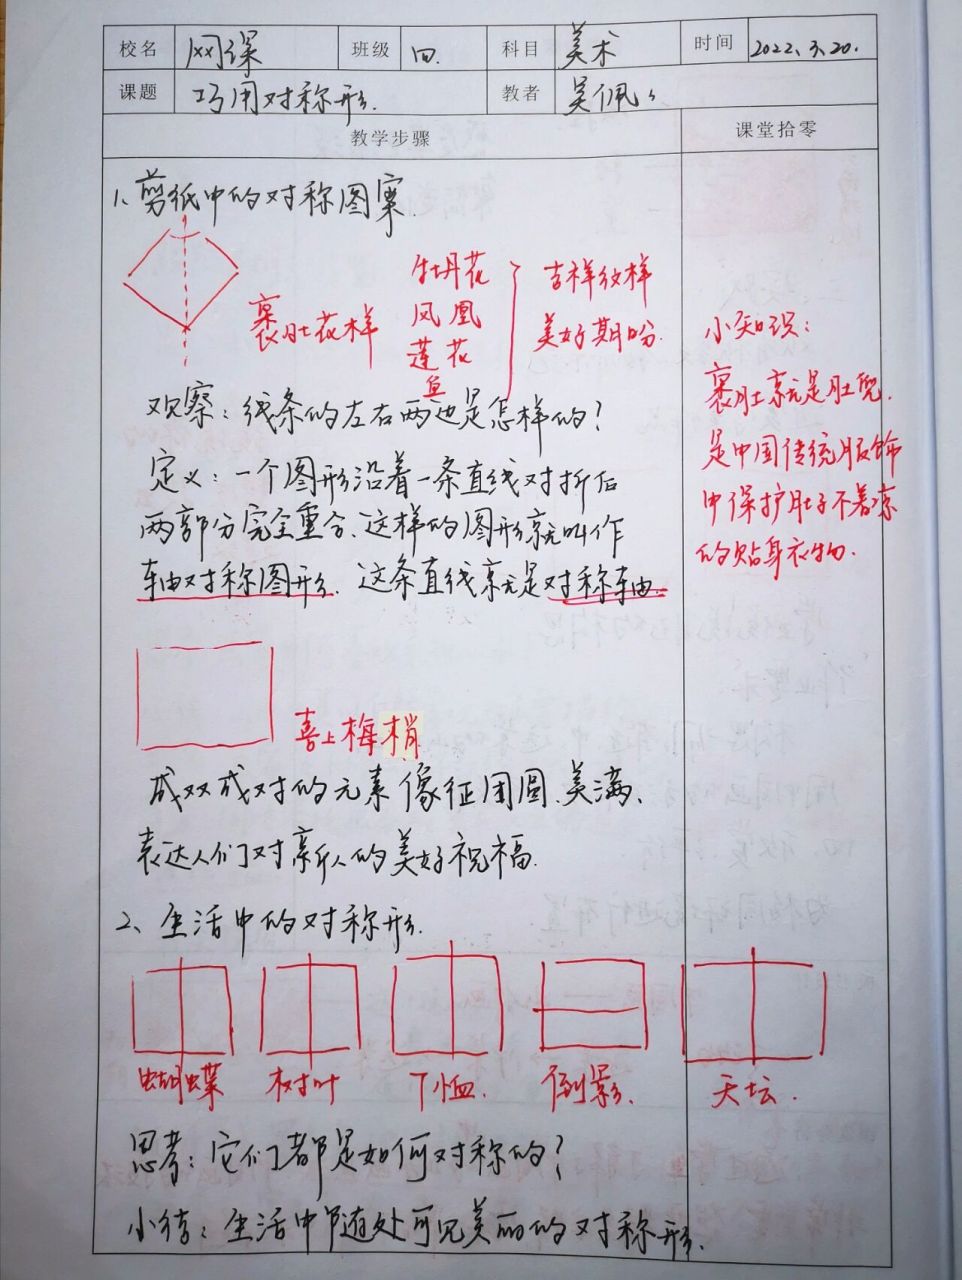 校名 网课 班级 四. 科目 美术 时间 2022.3.20.
课题 巧用对称形. 教者 吴佩
教学步骤 课堂拾零
1、剪纸中的对称图案.
裹肚花样
牡丹花
凤凰
莲花
鱼
吉祥纹样
美好期盼.
小知识:
裹肚就是肚兜.
是中国传统服饰
中保护肚子不着凉
的贴身衣物.
观察:线条的左右两边是怎样的?
定义:一个图形沿着一条直线对折后
两部分完全重合、这样的图形就叫作
轴对称图形.这条直线就是对称轴.
喜上梅梢
成双成对的元素像征团圆、美满、
表达人们对亲人的美好祝福.
2、生活中的对称形.
蝴蝶 树叶 倒影. 天坛.
思考:它们都是如何对称的?
小结:生活中随处可见美丽的对称形.